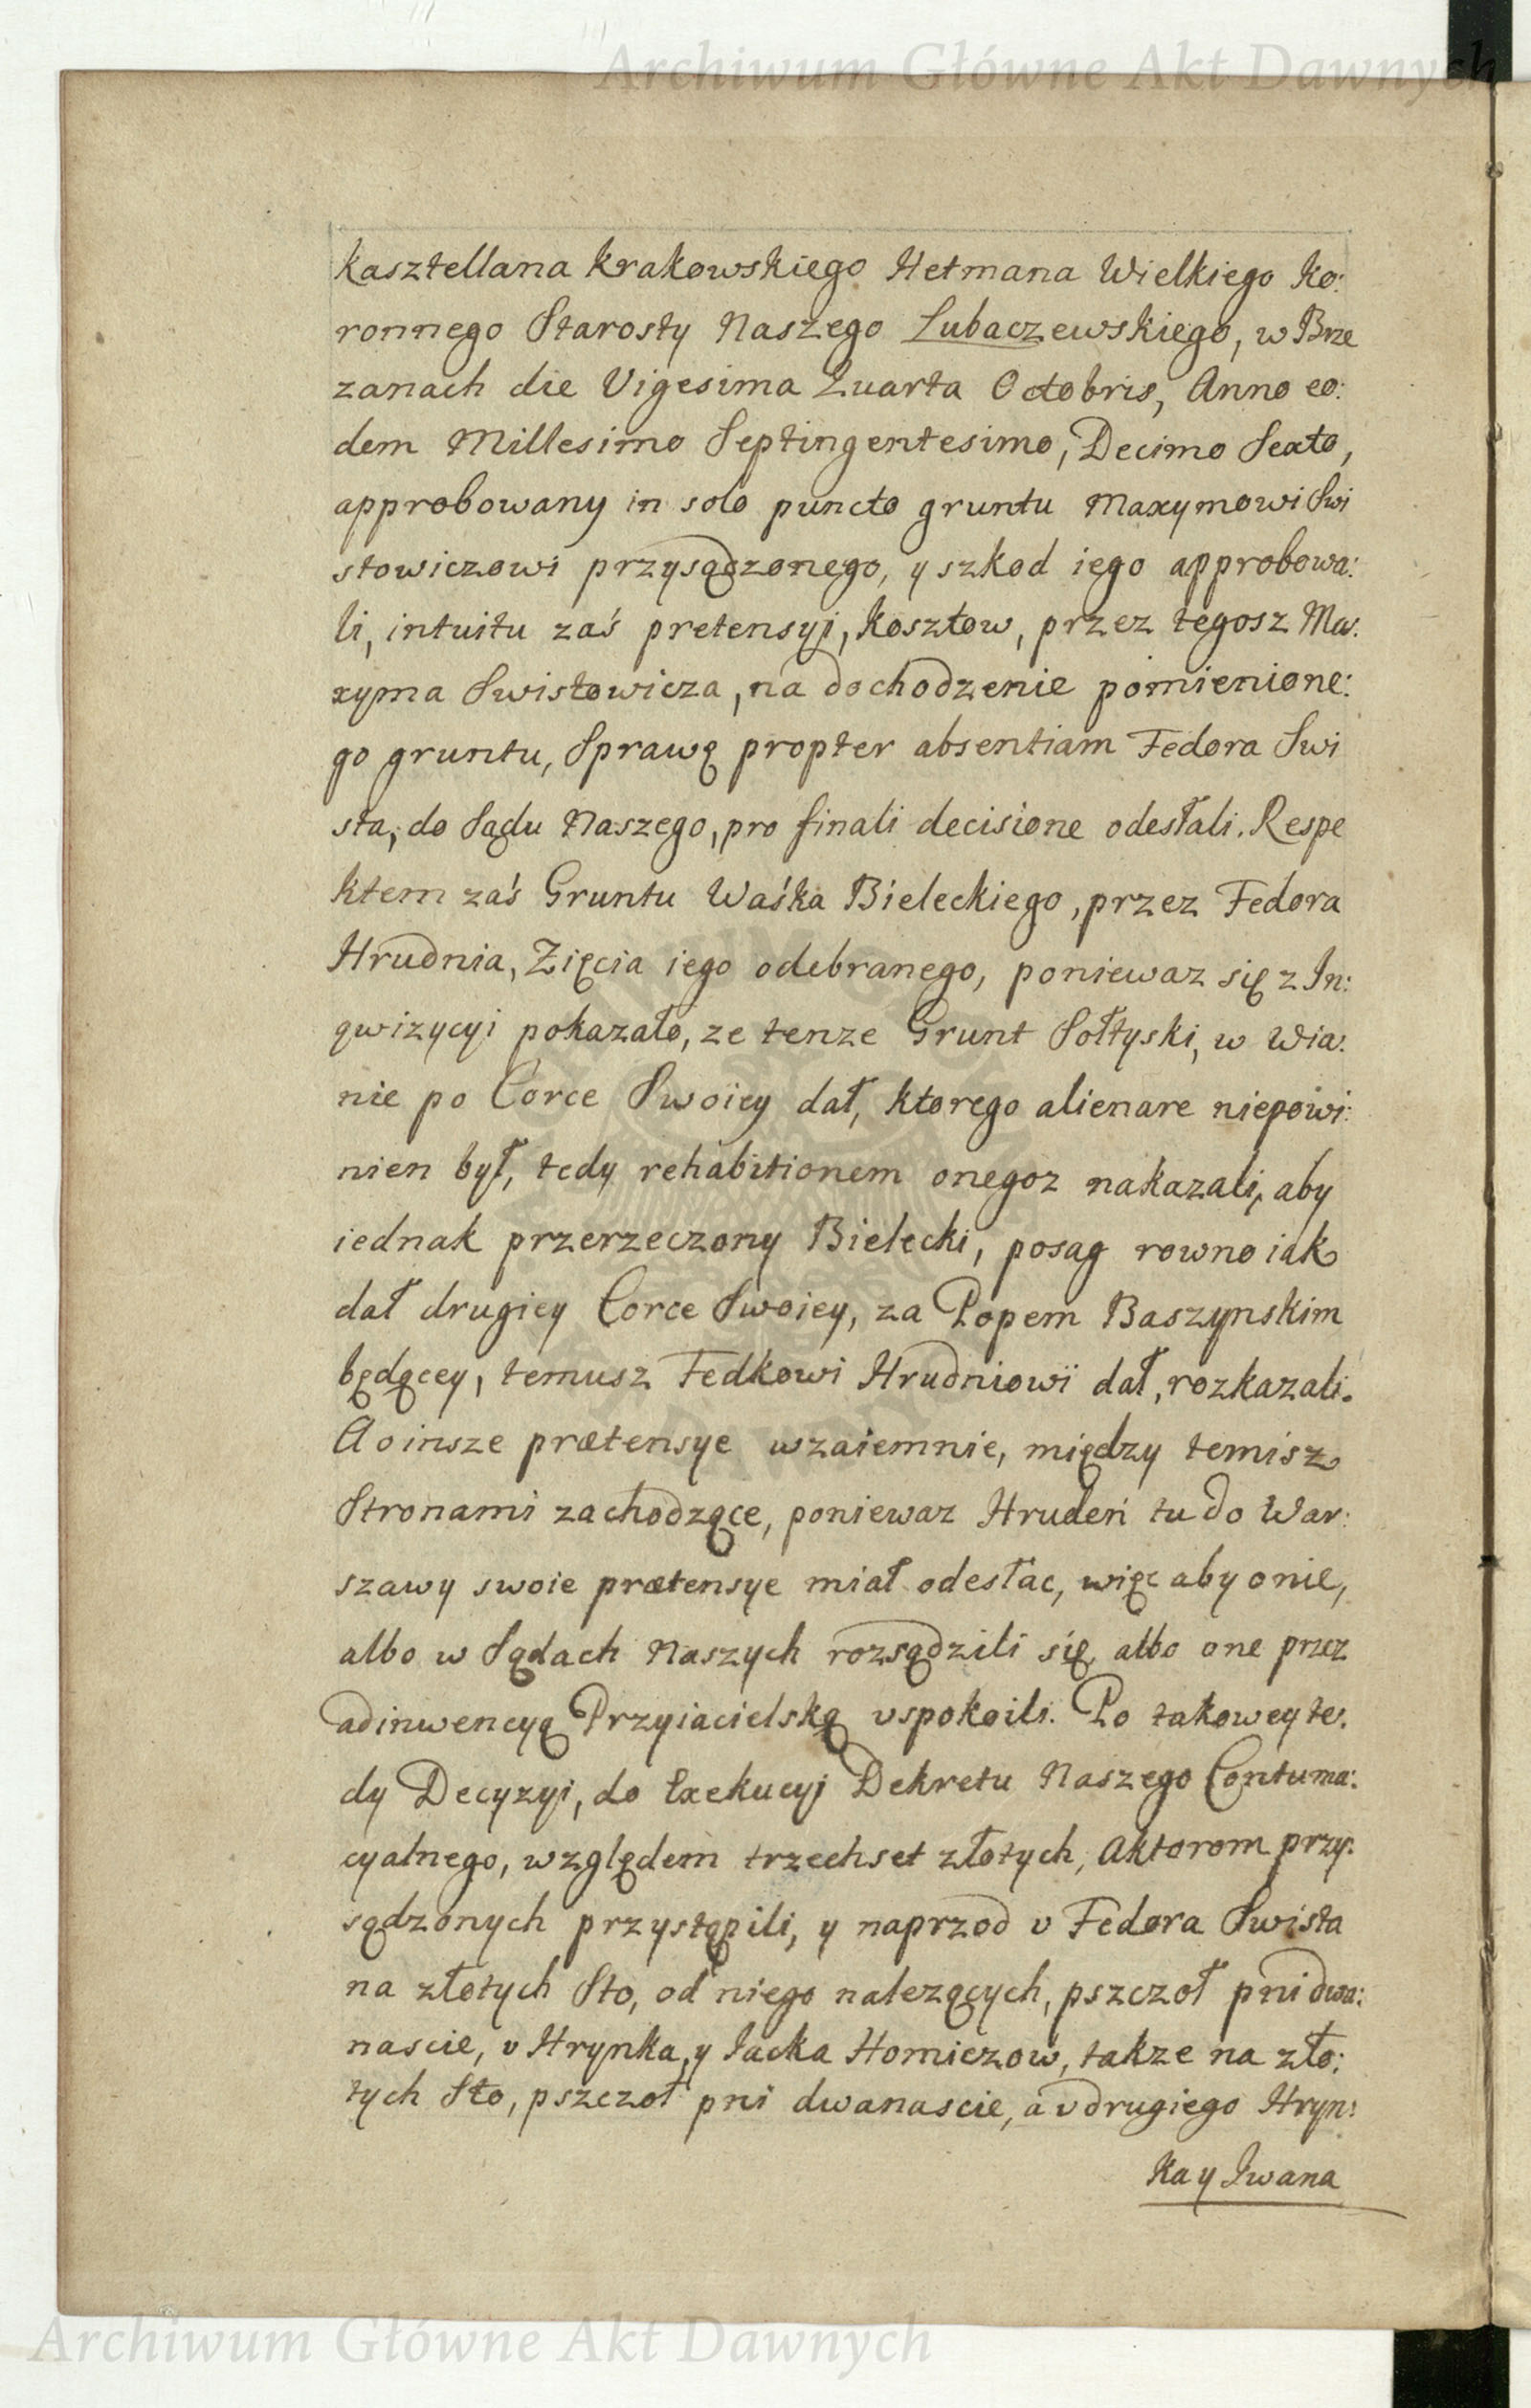 Archiwum Główne Akt Dawnych
kasztellana krakowskiego Hetmana Wielkiego Ko:
ronnego Starosty Naszego Lubaczewskiego, w Brze
zanach die Vigesima Quarta Octobris, Anno eo:
dem Millesimo Septingentesimo, Decimo Sexto,
approbowany in solo puncto gruntu Maxymowi Swi
stowiczowi przysądzonego, y szkod iego approbowa:
li, intuitu zaś pretensyi, kosztow, przez tegosz Ma:
xyma Swistowicza, na dochodzenie pomienione:
go gruntu, Sprawę propter absentiam Fedora Swi
sta, do Sądu Naszego, pro finali decisione odesłali. Respe
ktem zaś Gruntu Waśka Bieleckiego, przez Fedora
Hrudnia, Zięcia iego odebranego, poniewaz się z In:
qwizycyi pokazało, ze tenze Grunt Sołtyski, w Wia:
nie po Corce Swoiey dał, ktorego alienare niepowi:
nien był, tedy rehabitionem onegoz nakazali, aby
iednak przerzeczony Bielecki, posag rowno iak
dał drugiey Corce Swoiey, za Popem Baszynskim
będącey, temusz Fedkowi Hrudniowi dał, rozkazali.
A o insze prætensye wzaiemnie, między temisz
Stronami zachodzące, poniewaz Hrudeń tu do War:
szawy swoie prætensye miał odesłac, więc aby onie,
albo w Sądach Naszych rozsądzili się, albo one przez
adinwencyą Przyiacielską vspokoili. Po takowey te:
dy Decyzyi, do Exekucyi Dekretu Naszego Contuma:
cyalnego, względem trzechset złotych, Aktorom przy:
sądzonych przystąpili, y naprzod v Fedora Swista
na złotych Sto, od niego nalezących, pszczoł pni dwa:
nascie, v Hrynka, y Jacka Homiczow, takze na zło:
tych Sto, pszczoł pni dwanascie, a v drugiego Hryn:
ka y Iwana
Archiwum Główne Akt Dawnych